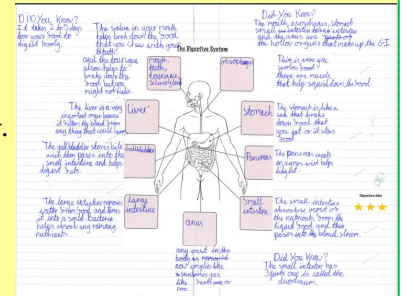 DID YOU Know?
It takes 2 to 3 days
for your food to
digest fully.
The saliva in your mouth
helps break down the food
that you chew with your
teeth
and the tounge
also helps to
brake down the
food but you
might not
Did You Know?
The mouth, esophagus, stomach
small
and the anus are
the hollow organs that make up the G.I.
The Digestive System
mouth,
teeth,
tounge
esophagus
This is were you
swallow food
there are muscels
that help squish down the food.
The liver is a very
important organ because
it filters the blood from
any thing that could harm.
liver
Stomach
The stomach is like a
sak that brakes
down food that
you eat or it stors
food
The gallbladder stores bile
witch then passes into the
small intestine and helps
digest fats.
Gallbladder
Pancreas
The pancreas
enzymes witch helps
digest.
Objective Met
The large intestine removes
water from food, and turns
it into a solid. Bacteria
helps absorb any remaining
nutrients.
large
intestine
Small
intestine
The small intestine
absorbs most of
the nutrients from the
liquid food and then
passes into the blood stream.
anus
any waist in the
body is removed
like
poo.
Did You Know?
The small intestine has
3 parts one is called the
duodenum.